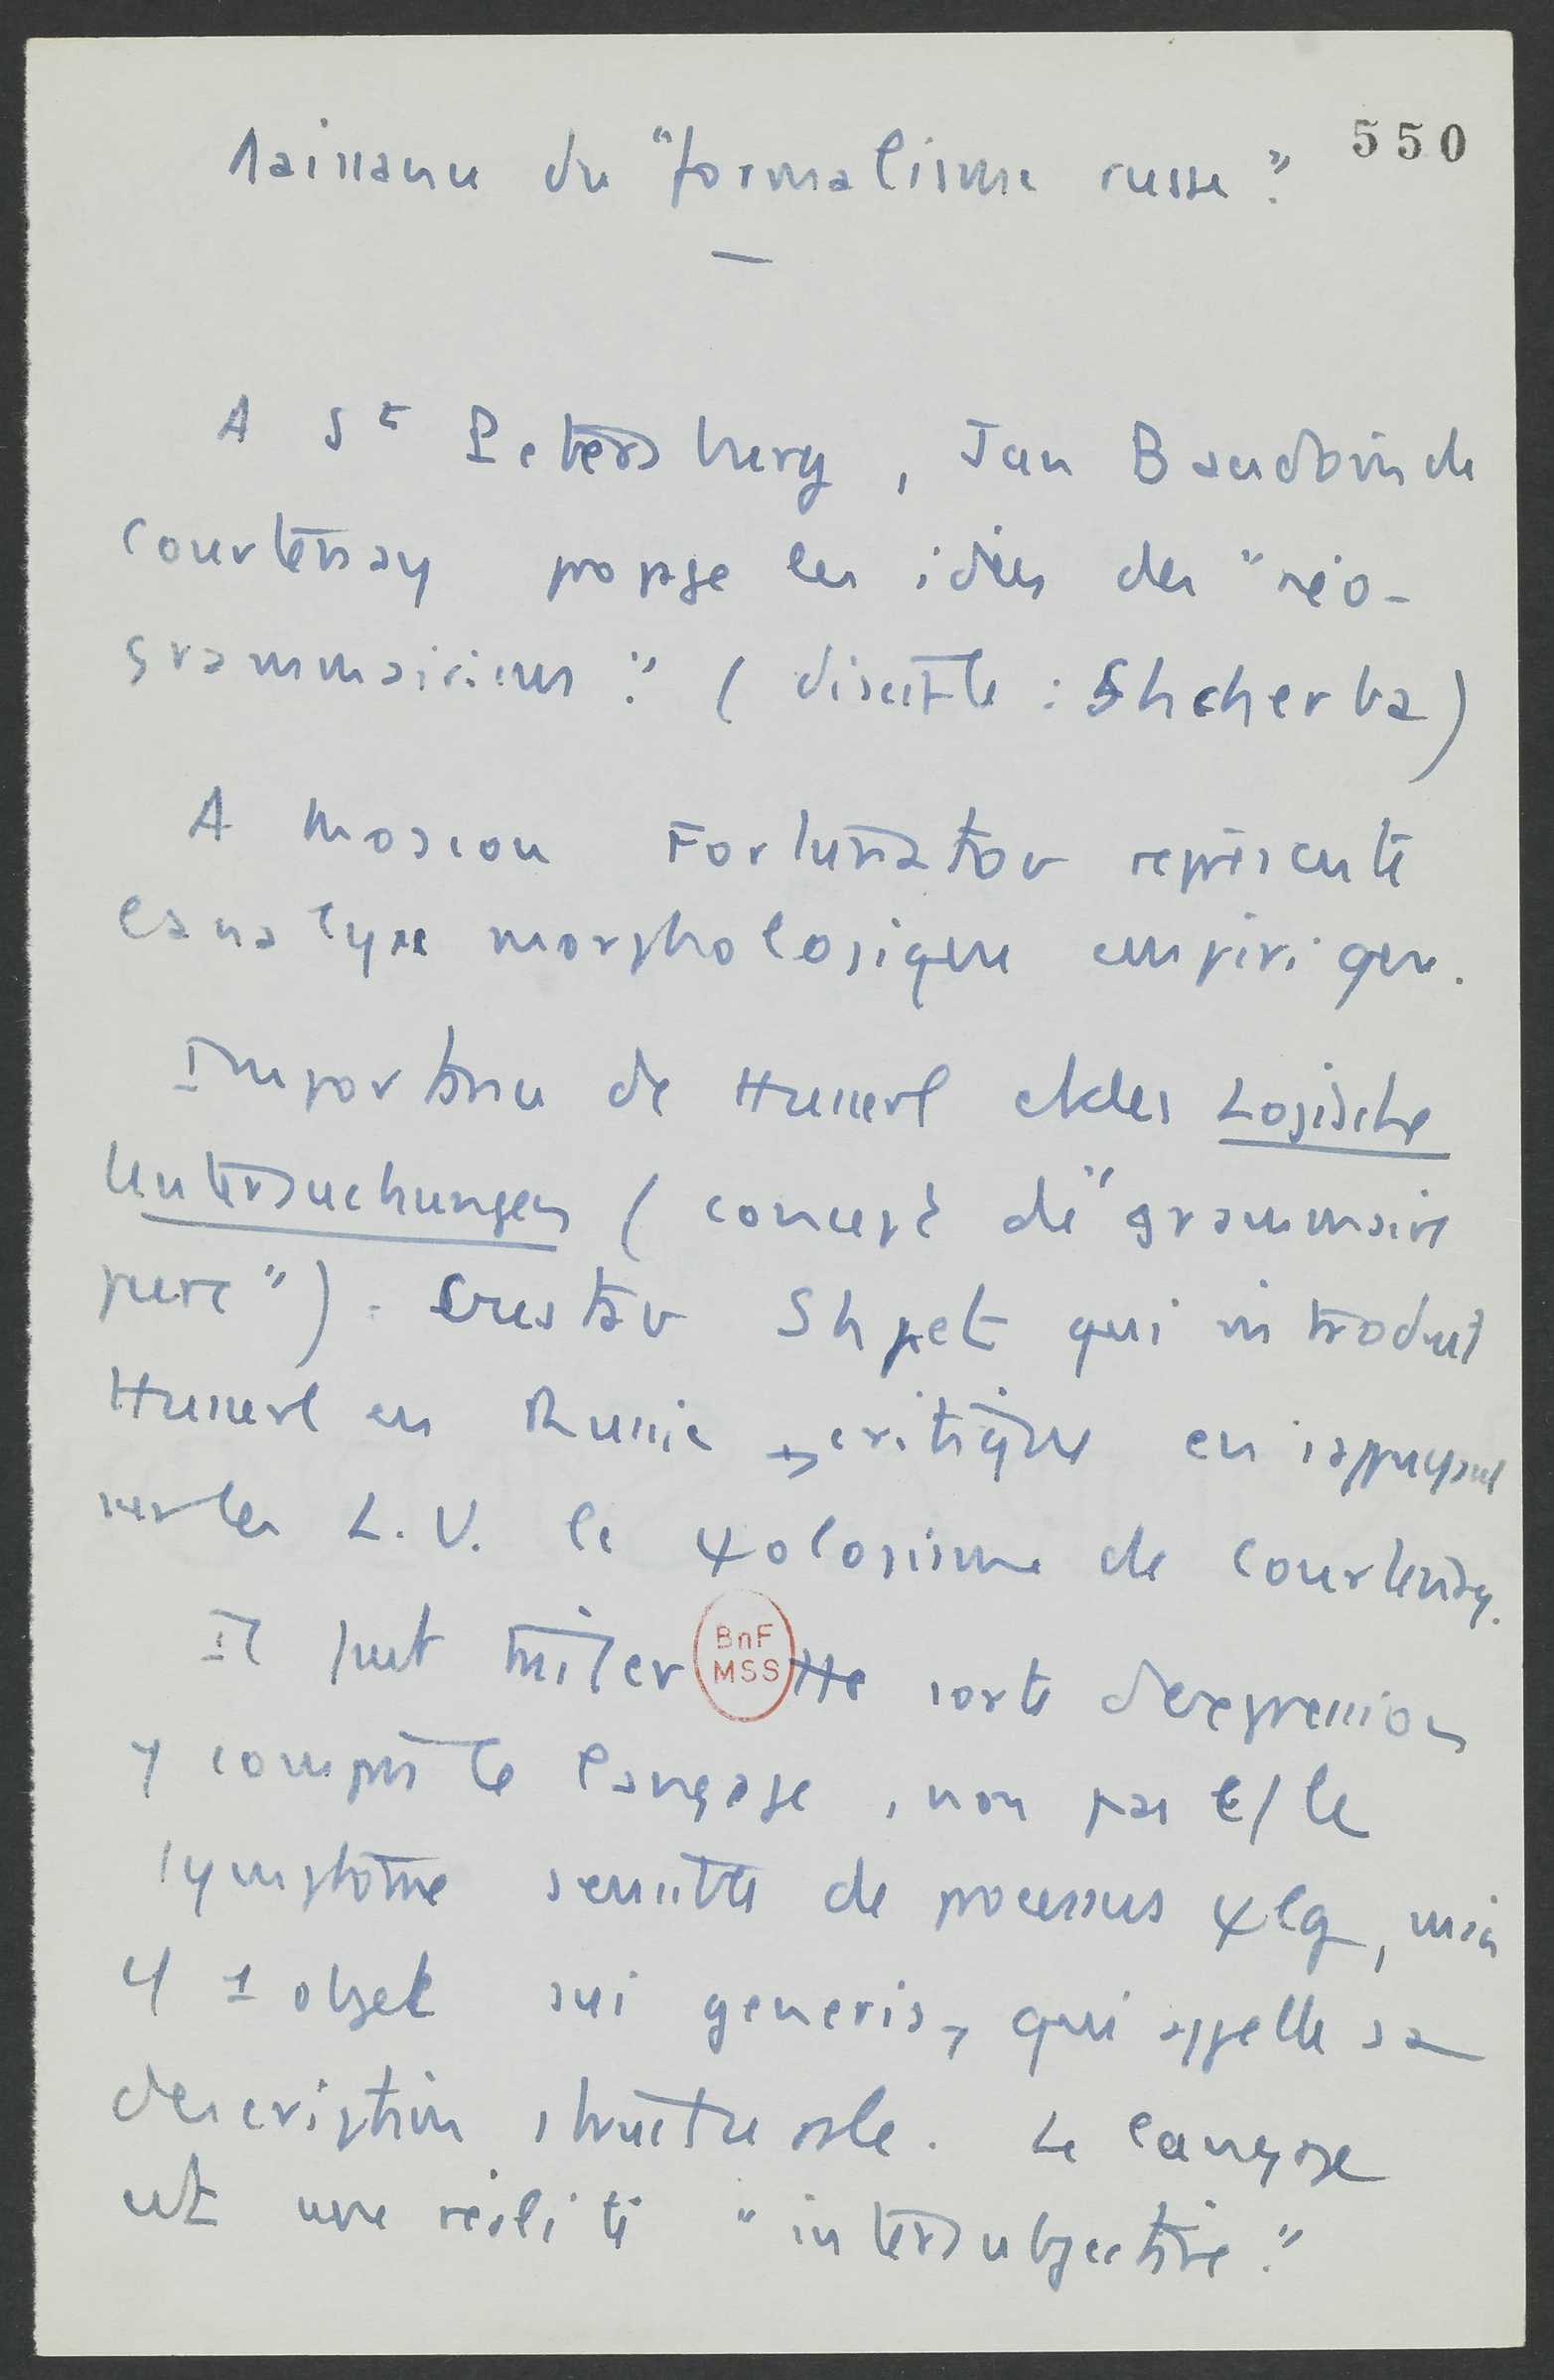 550
Naissance du "formalisme russe".
A St Petersburg, Jan Baudoin de
Courtenay propage les idées des "néo-
grammairiens". (disciple : Shcherba)
A Moscou Fortunatov représente
l'analyse morphologique empirique.
Importance de Husserl et des Logische
Untersuchungen (concept de "grammaire
pure"). Gustav Shpet qui introduit
Husserl en Russie critique en s'appuyant
sur les L.U. le ψologisme de Courtenay.
Il faut traiter
BnF
MSS
tte sorte d'expression
y compris le langage, non pas c/ le
symptôme sensible de processus ψlq, mais
c/ 1 objet sui generis, qui appelle sa
description structurale. Le langage
est une réalité "intersubjective".